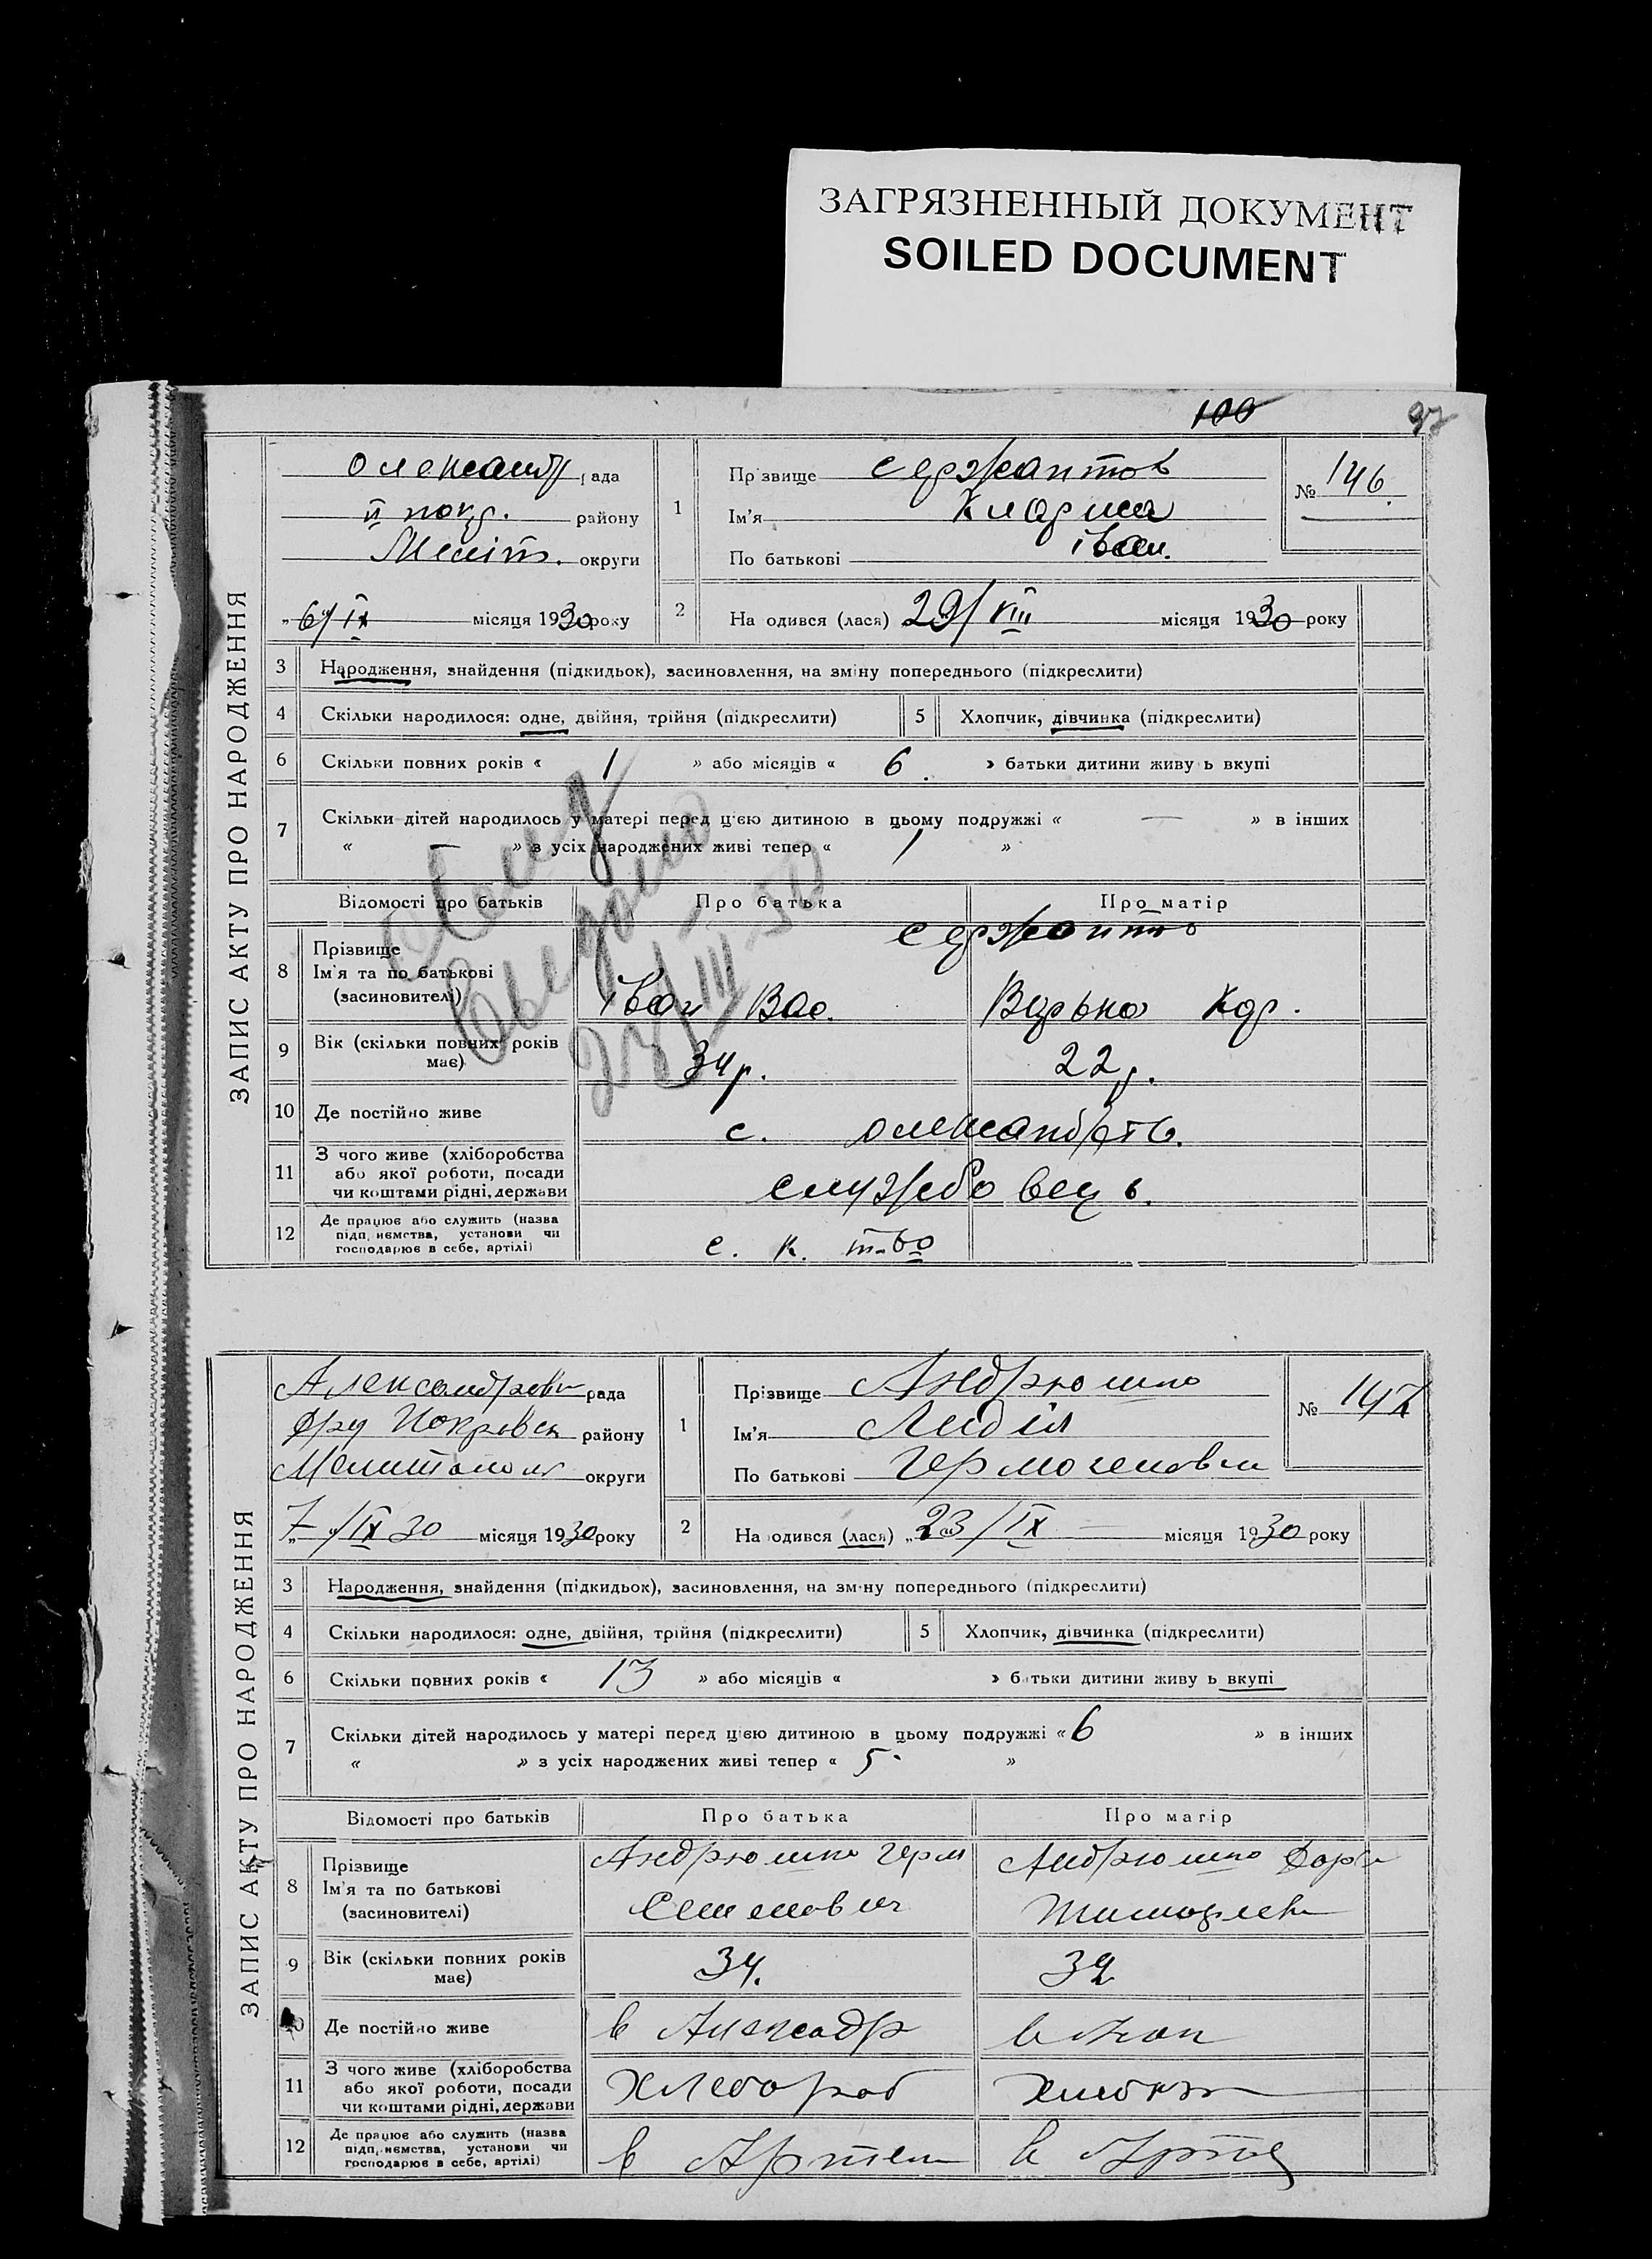 ЗАГРЯЗНЕННЫЙ ДОКУМЕНТ
SOILED DOCUMENT
100
97
ЗАПИС АКТУ ПРО НАРОДЖЕННЯ
Олександр рада
ІІ покр. району
Меліт. округи
1
Прізвище Сержантов
Ім'я
По батькові Іван.
№ 146.
„6"/IX місяця 1930 року
2
На одився (лася) 29/VIII місяця 1930 року
3 Народження, знайдення (підкидьок), засиновлення, на зміну попереднього (підкреслити)
4 Скільки народилося: одне, двійня, трійня (підкреслити)
5 Хлопчик, дівчинка (підкреслити)
6 Скільки повних років « 1 » або місяців « 6. » батьки дитини живу ь вкупі
7 Скільки дітей народилось у матері перед цією дитиною в цьому подружжі « — » в інших
« — » з усіх народжених живі тепер « 1 »
Відомості про батьків
Про батька
Про матір
8 Прізвище
Ім'я та по батькові
(засновителі)
Сержантов
Іван Вас.
Варька
9 Вік (скільки повних років
має)
34 р.
22 р.
10 Де постійно живе
с. Олександрів.
11 З чого живе (хліборобства
або якої роботи, посади
чи коштами рідні, держави
службовець.
12 Де працює або служить (назва
підп. иємства, установи чи
господарює в себе, артілі)
с. к. т-во
ЗАПИС АКТУ ПРО НАРОДЖЕННЯ
Александровк рада
Покровск району
Мелитополь округи
1
Прізвище Андрющенко
Ім'я Лидія
По батькові Гермогеновна
№ 147
7/IX 30 місяця 1930 року
2
На одився (лася) „23/IX — місяця 1930 року
3 Народження, знайдення (підкидьок), засиновлення, на зм ну попереднього (підкреслити)
4 Скільки народилося: одне, двійня, трійня (підкреслити)
5 Хлопчик, дівчинка (підкреслити)
6 Скільки повних років « 13 » або місяців « » батьки дитини живу ь вкупі
7 Скільки дітей народилось у матері перед цією дитиною в цьому подружжі « 6 » в інших
« » з усіх народжених живі тепер « 5 »
Відомості про батьків
Про батька
Про матір
8 Прізвище
Ім'я та по батькові
(засиновителі)
Герм
Семенович
9 Вік (скільки повних років
має)
34.
32
10 Де постійно живе
в Александр
11 З чого живе (хліборобства
або якої роботи, посади
чи коштами рідні, держави
Хлебороб
12 Де працює або служить (назва
підп. иємства, установи чи
господарює в себе, артілі)
в Артели
в Артел